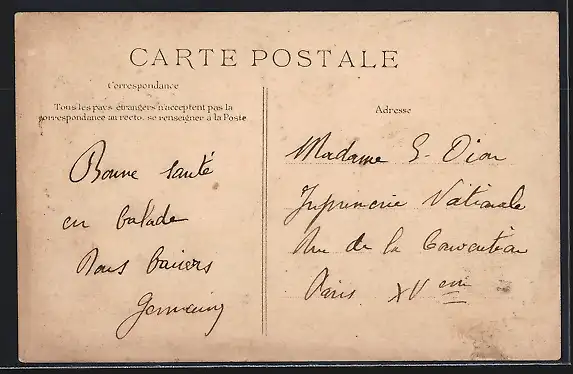 CARTE POSTALE
Correspondance
Tous les pays étrangers n'acceptent pas la
correspondance au recto. se renseigner à la Poste
Bonne santé
en balade
Bons baisers
Germain
Adresse
Madame S. Dion
Imprimerie Nationale
Rue de la Convention
Paris XVeme